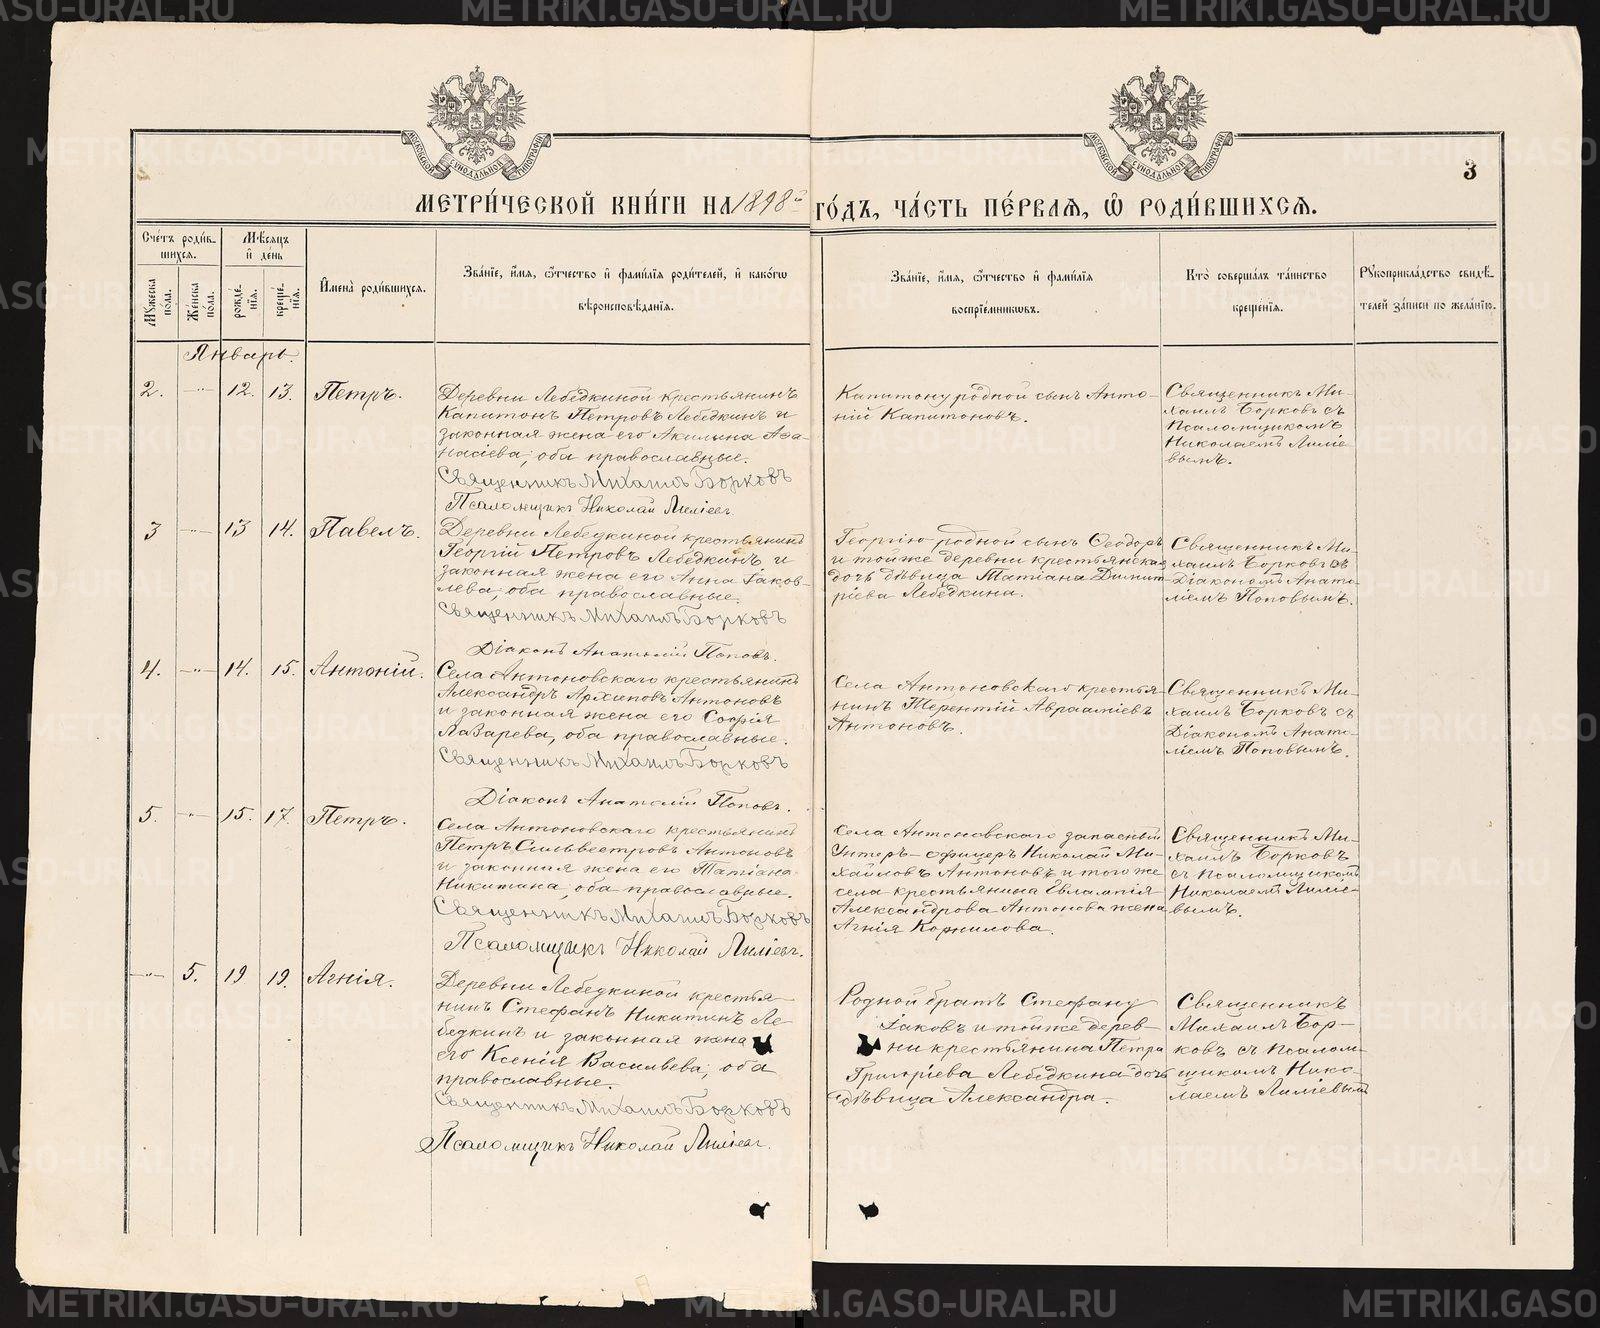 METRIKI.GASO-URAL.RU
МОСКОВСКОЙ СУНОДАЛЬНОЙ ТИПОГРАФІИ
МОСКОВСКОЙ СУНОДАЛЬНОЙ ТИПОГРАФІИ
3
МЕТРИ́ЧЕСКОЙ КНИ́ГИ НА 1898й ГО́ДЪ, ЧА́СТЬ ПЕ́РВАѦ, Ѡ҆ РОДИ́ВШИХСѦ.
Сче́тъ роди́в-
шихся.
Мѣсяцъ
и҆ де́нь
Мꙋжеска
пола.
Же́нска
по́ла.
рожде́-
нїѧ.
креще́-
нїѧ.
И҆мена̀ роди́вшихся.
Зва́нїе, и҆́мѧ, ѻ҆́тчество и҆ фами́лїѧ роди́телей, и҆ како́гѡ
вѣроисповѣ́данїѧ.
Зва́нїе, и҆́мѧ, ѻ҆́тчество и҆ фами́лїѧ
воспрїе́мникѡвъ.
Кто̀ соверша́лъ та́инство
креще́нїѧ.
Рꙋкоприкла́дство свидѣ́-
телей за́писи по жела́нїю.
Январь.
2. -"- 12. 13. Петръ.
Деревни Лебедкиной крестьянинъ
Капитонъ Петровъ Лебедкинъ и
законная жена его Акилина Аѳа-
насіева, оба православные.
Священникъ Михаилъ Борковъ
Псаломщикъ Николай Лиліевъ
Капитону родной сынъ Анто-
ній Капитоновъ.
Священникъ Ми-
хаилъ Борковъ съ
Псаломщикомъ
Николаемъ Лиліе-
вымъ.
3 -"- 13 14. Павелъ.
Деревни Лебедкиной крестьянинъ
Георгій Петровъ Лебедкинъ и
законная жена его Анна Іаков-
лева, оба православные.
Священникъ Михаилъ Борковъ
Діаконъ Анатолій Поповъ.
Георгію родной сынъ Ѳеодоръ
и тойже деревни крестьянская
дочь дѣвица Татіана Димит-
ріева Лебедкина.
Священникъ Ми-
хаилъ Борковъ съ
Діакономъ Анато-
ліемъ Поповымъ.
4. -"- 14. 15. Антоній.
Села Антоновскаго крестьянинъ
Александръ Архиповъ Антоновъ
и законная жена его Софія
Лазарева, оба православные.
Священникъ Михаилъ Борковъ
Діаконъ Анатолій Поповъ.
Села Антоновскаго крестья-
нинъ Терентій Авраамиевъ
Антоновъ.
Священникъ Ми-
хаилъ Борковъ съ
Діакономъ Анато-
ліемъ Поповымъ.
5. -"- 15. 17. Петръ.
Села Антоновскаго крестьянинъ
Петръ Сильвестровъ Антоновъ
и законная жена его Татіана
Никитина, оба православные.
Священникъ Михаилъ Борковъ
Псаломщикъ Николай Лиліевъ.
Села Антоновскаго запасный
Унтеръ-офицеръ Николай Ми-
хайловъ Антоновъ и того же
села крестьянина Евлампія
Александрова Антонова жена
Агнія Корнилова.
Священникъ Ми-
хаилъ Борковъ
съ Псаломщикомъ
Николаемъ Лиліе-
вымъ.
-"- 5. 19 19. Агнія.
Деревни Лебедкиной крестья-
нинъ Стефанъ Никитинъ Ле-
бедкинъ и законная жена
его Ксенія Васильева, оба
православные.
Священникъ Михаилъ Борковъ
Псаломщикъ Николай Лиліевъ.
Родной братъ Стефану
Іаковъ и тойже дерев-
ни крестьянина Петра
Григоріева Лебедкина дочь
дѣвица Александра.
Священникъ
Михаилъ Бор-
ковъ съ псалом-
щикомъ Нико-
лаемъ Лиліевымъ